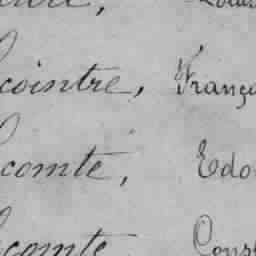 Lecointre, Franço
Lecomte, Edo
Lecomte Cons